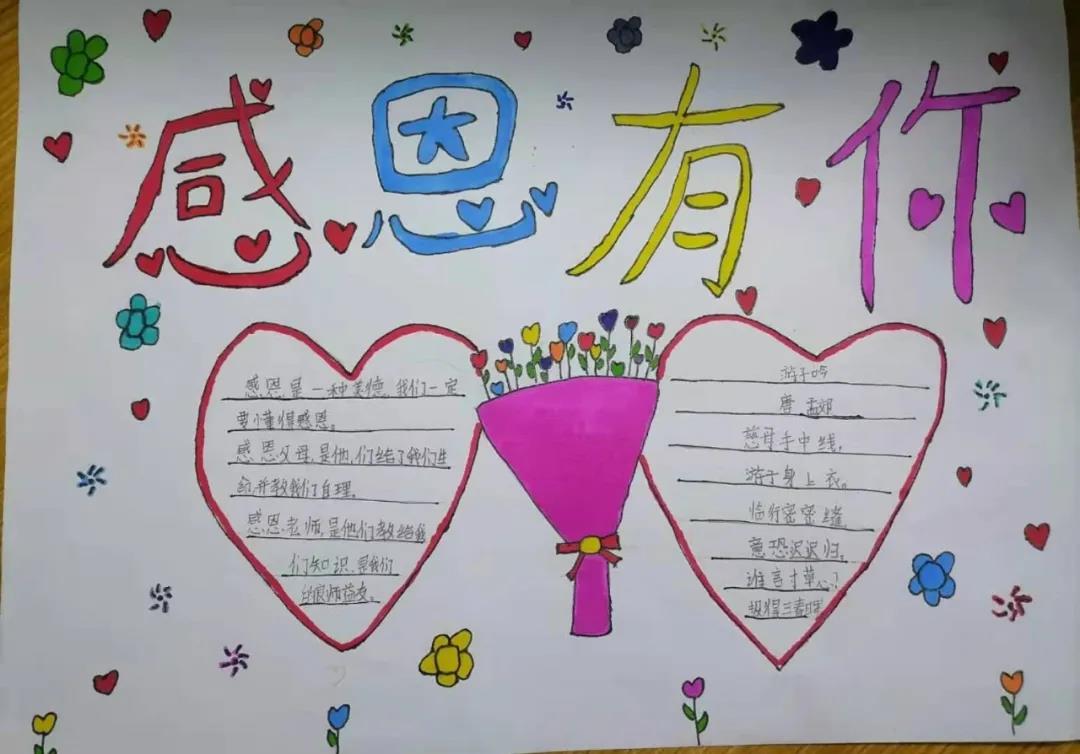 感恩有你
感恩是一种美德,我们一定
要懂得感恩。
感恩父母,是他们给了我们生
命,并教我们自理。
感恩老师,是他们教给我
们知识,是我们
的良师益友。
游子吟
唐 孟郊
慈母手中线,
游子身上衣。
临行密密缝
意恐迟迟归。
谁言寸草心?
报得三春晖